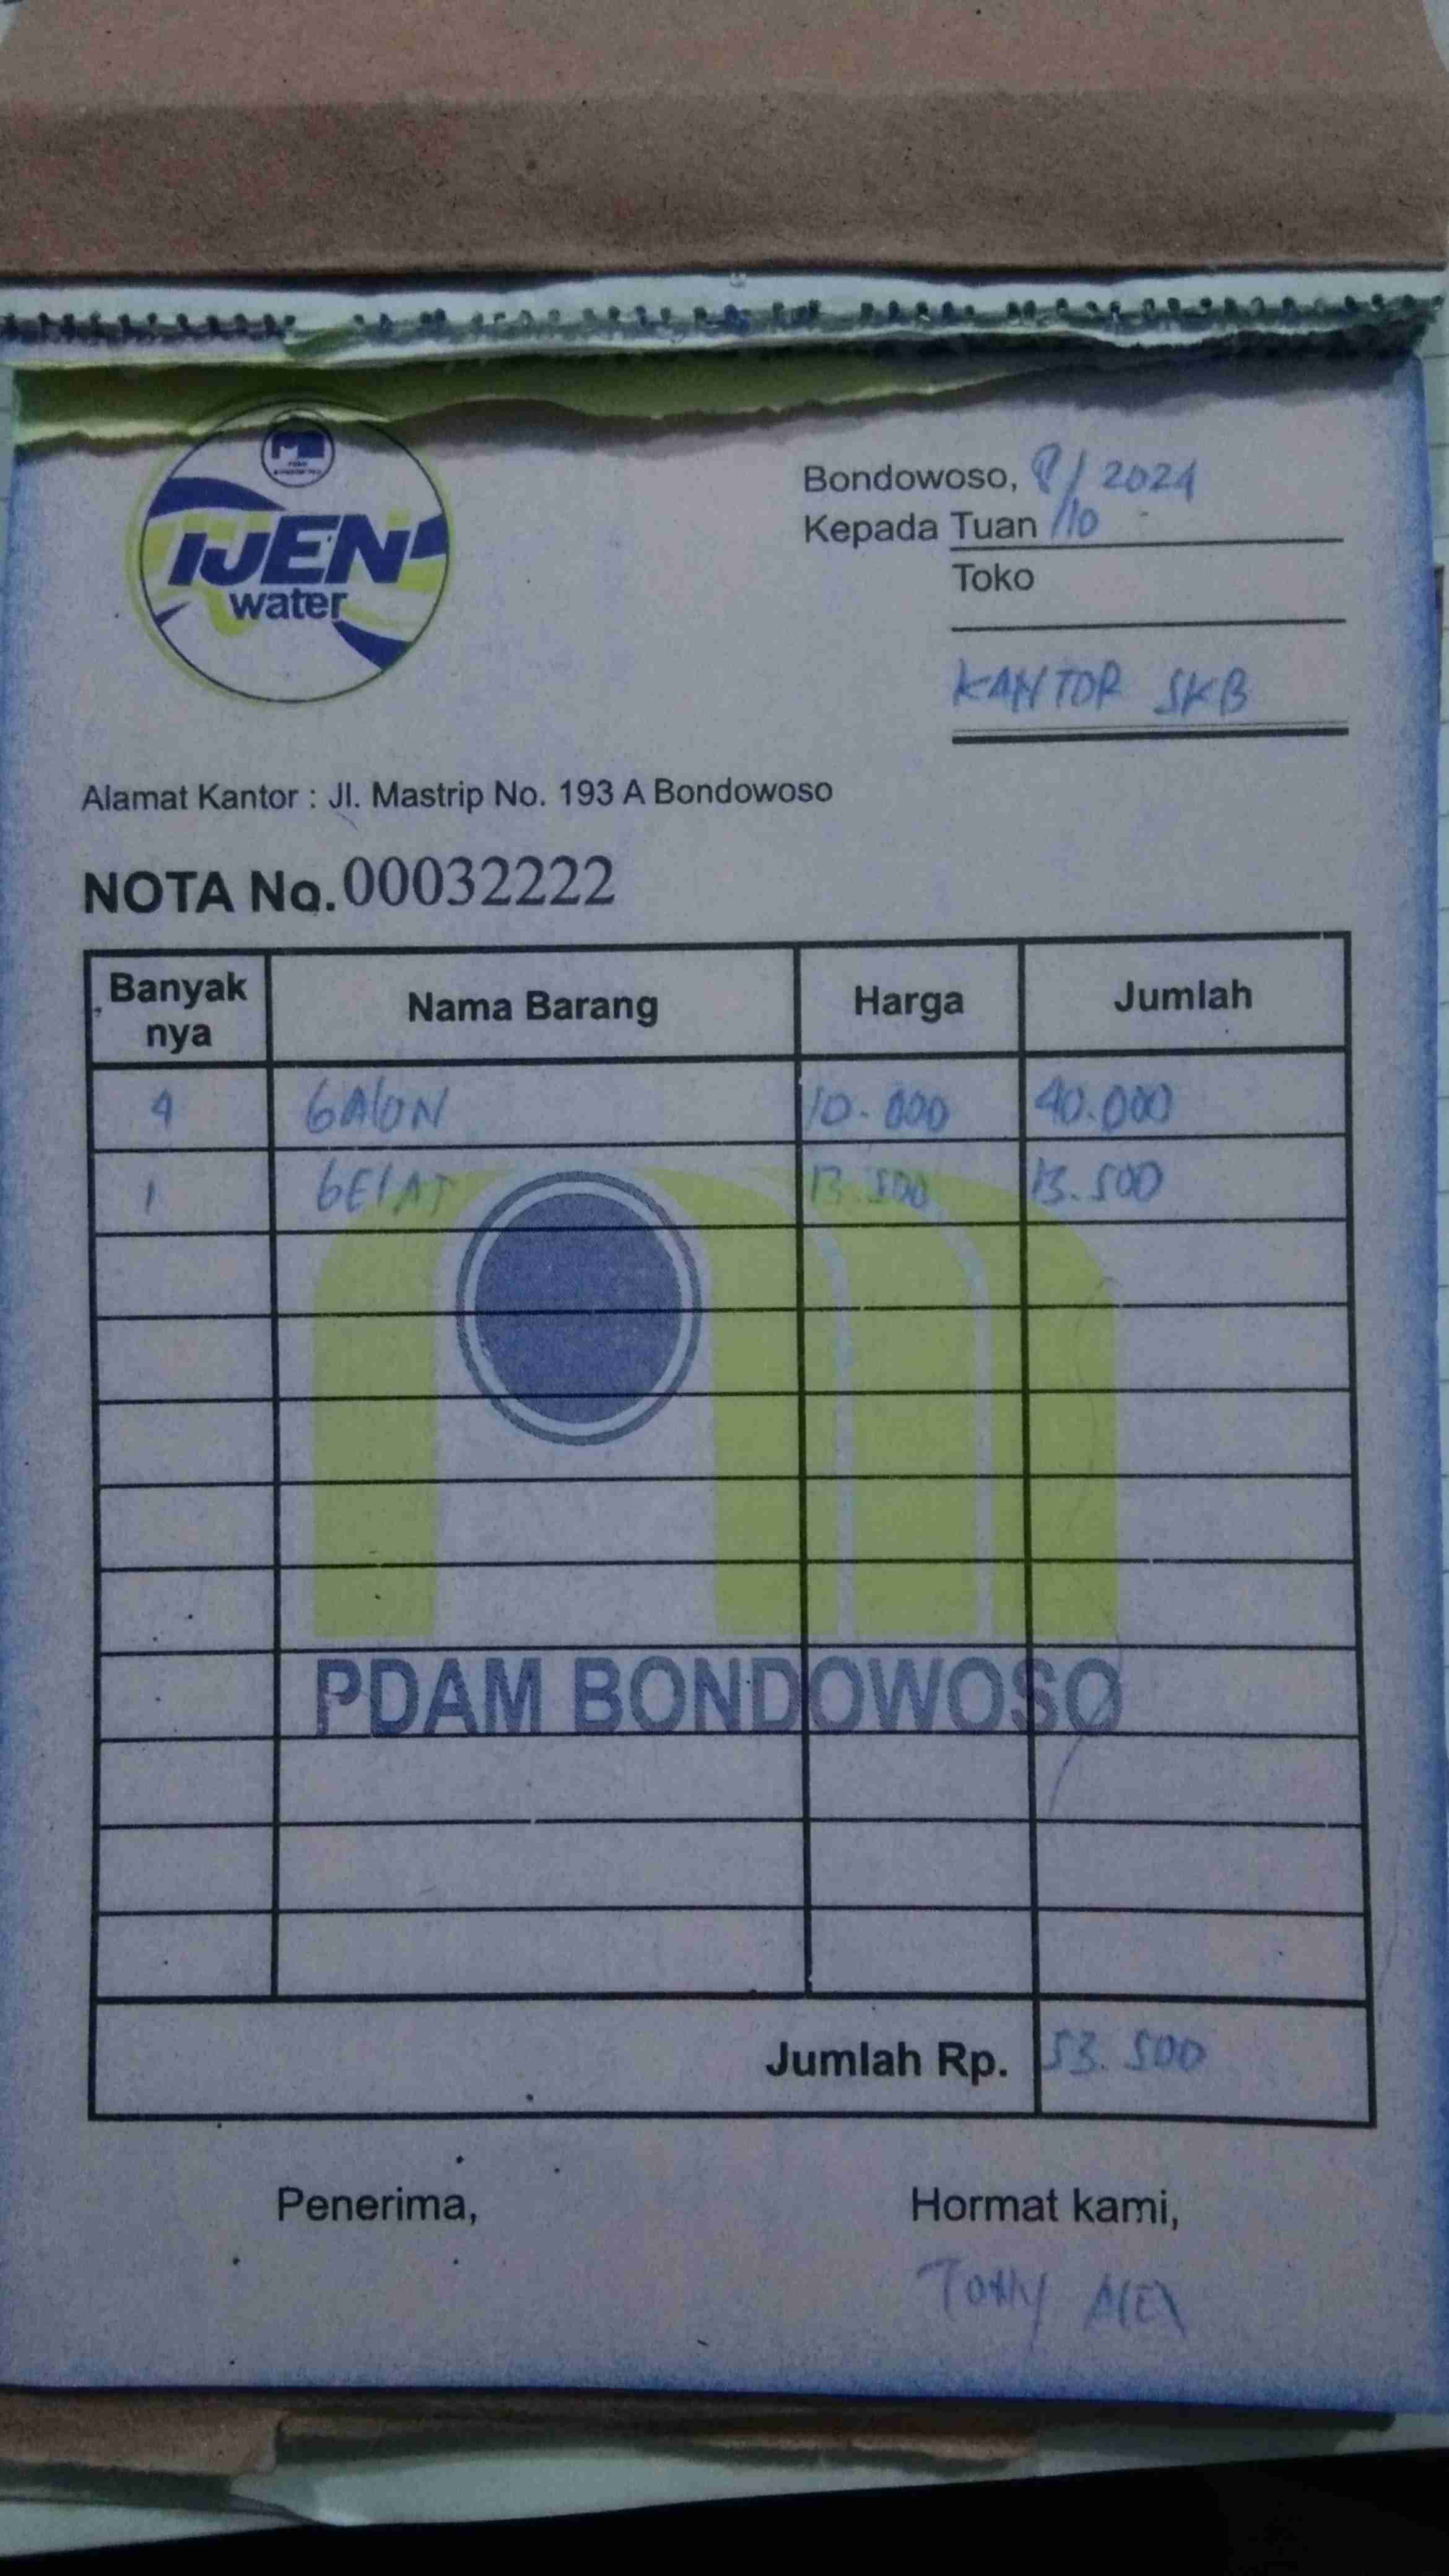 IJEN
water
Bondowoso, 8/10 2024
Kepada Tuan
Toko
KANTOR SKB
Alamat Kantor : Jl. Mastrip No. 193 A Bondowoso
NOTA No. 00032222
Banyak nya Nama Barang Harga Jumlah
4 GALON 10.000 40.000
1 GELAT 13.500 13.500
PDAM BONDOWOSO
Jumlah Rp. 53.500
Penerima, Hormat kami,